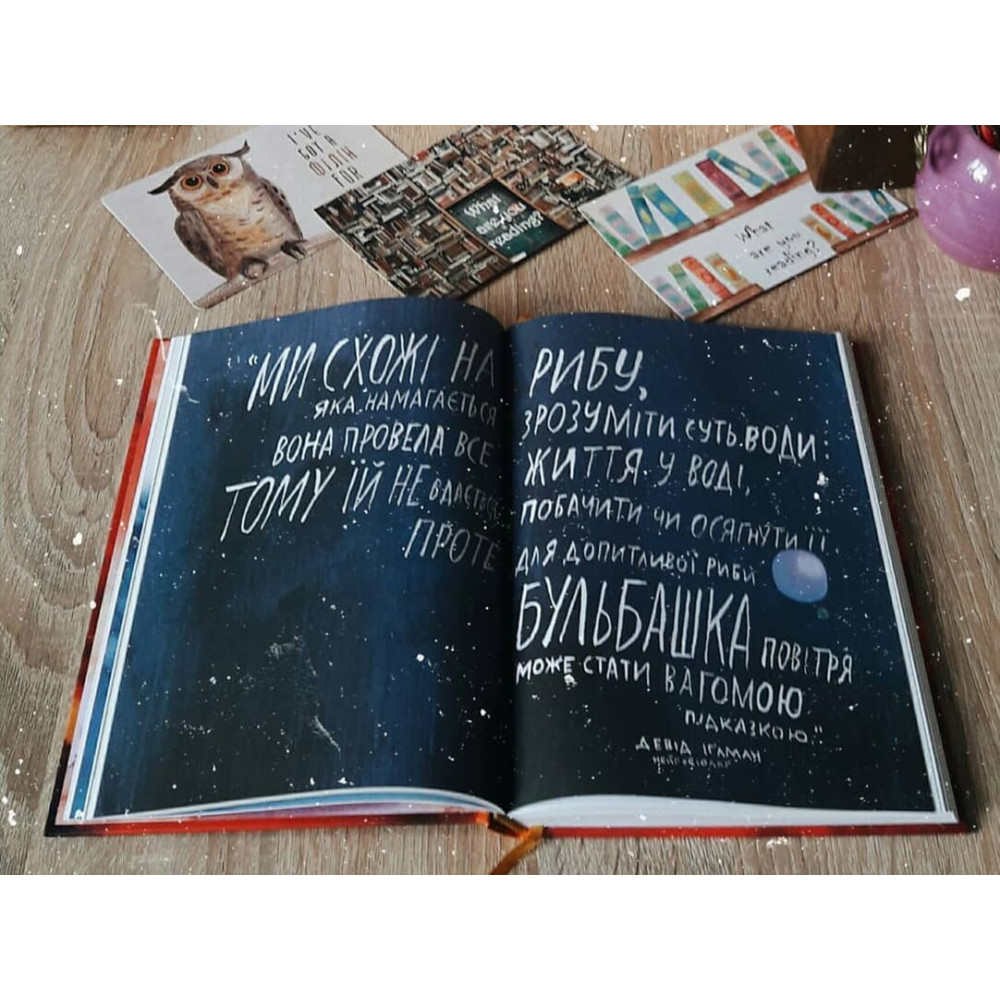 I'VE
GOT A
ФІЛІН
FOR
What
are you
reading?
What
are you
reading?
"МИ СХОЖІ НА РИБУ,
ЯКА НАМАГАЄТЬСЯ ЗРОЗУМІТИ СУТЬ ВОДИ:
ВОНА ПРОВЕЛА ВСЕ ЖИТТЯ У ВОДІ,
ТОМУ ЇЙ НЕ ВДАЄТЬСЯ ПОБАЧИТИ ЧИ ОСЯГНУТИ ЇЇ.
ПРОТЕ ДЛЯ ДОПИТЛИВОЇ РИБИ
БУЛЬБАШКА ПОВІТРЯ
МОЖЕ СТАТИ ВАГОМОЮ
ПІДКАЗКОЮ."
ДЕВІД ІГЛМАН
НЕЙРОБІОЛОГ